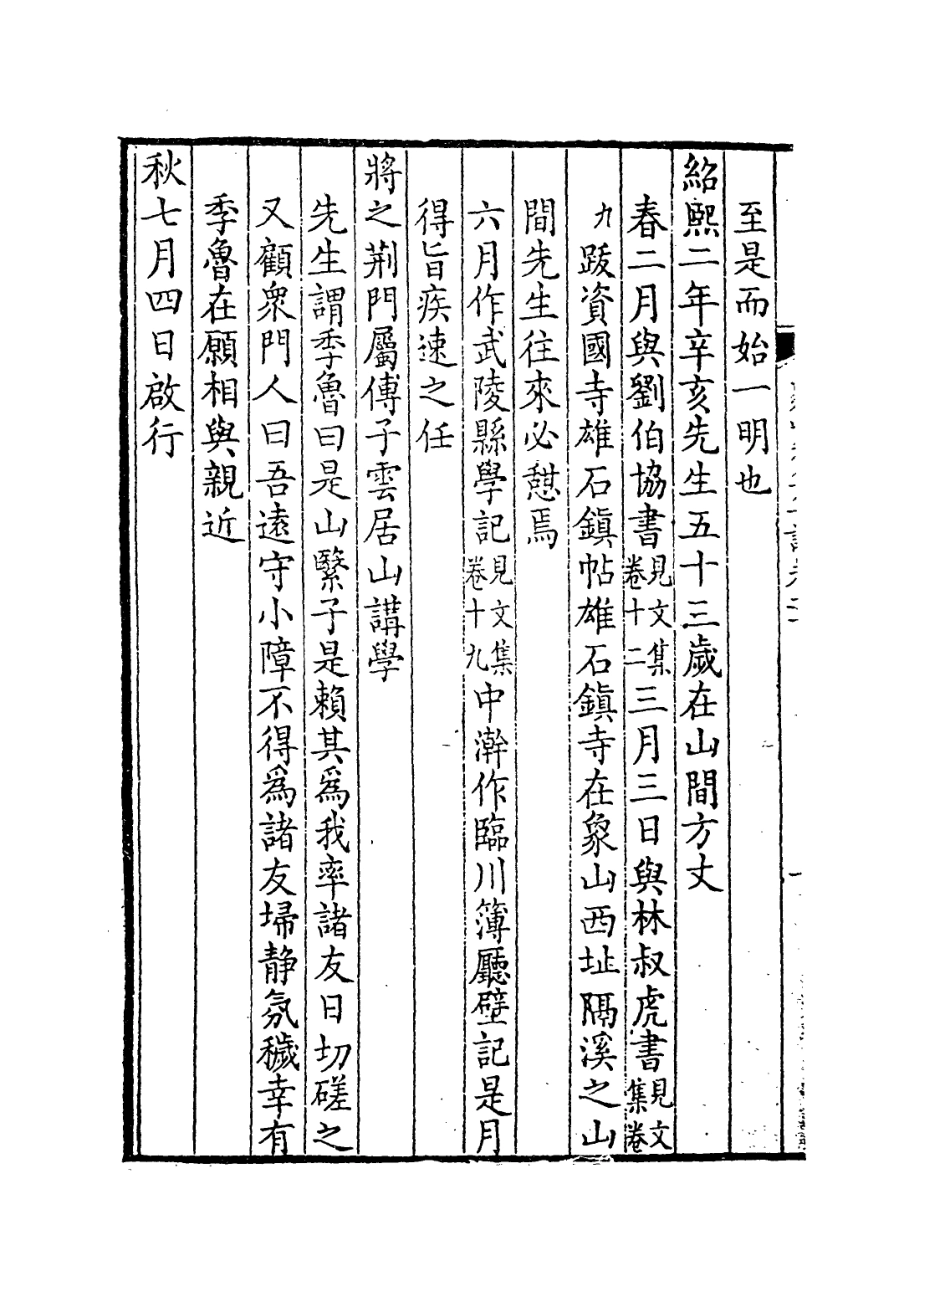 至是而始一明也
紹熙二年辛亥先生五十三歲在山間方丈
春二月與劉伯協書見文集卷十二三月三日與林叔虎書見文集卷
九跋資國寺雄石鎮帖雄石鎮寺在象山西址隔溪之山
間先生往來必憇焉
六月作武陵縣學記見文集卷十九中澣作臨川簿廳壁記是月
得旨疾速之任
將之荆門屬傅子雲居山講學
先生謂季魯曰是山繄子是賴其爲我率諸友日切磋之
又顧衆門人曰吾遠守小障不得爲諸友埽静氛穢幸有
季魯在願相與親近
秋七月四日啟行